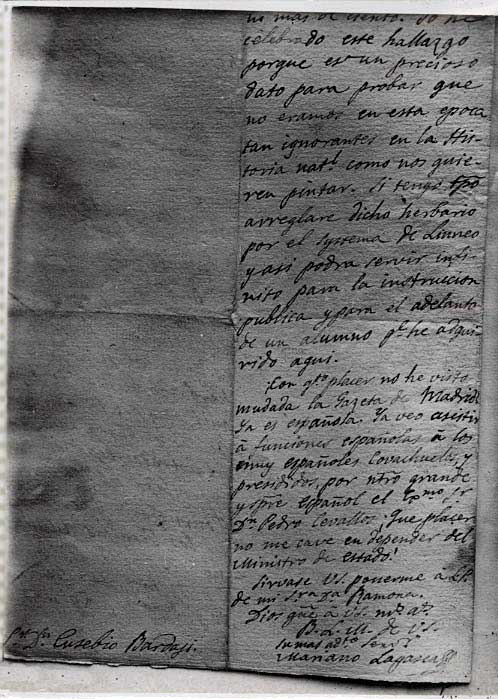 no mas de ciento. Yo he
celebrado este hallazgo
porque es un precioso
dato para probar que
no eramos en esta epoca
tan ignorantes en la His-
toria nat.l como nos quie-
ren pintar. Si tengo tpo
arreglare dicho herbario
por el systema de Linneo
y asi podra servir infi-
nito para la instruccion
publica y para el adelanto
de un alumno q.e he adqui-
rido aqui.
¡Con q.to placer no he visto
mudada la Gazeta de Madrid!
Ya es española. Ya veo asistir
à funciones españolas à los
muy españoles Covachuelos, y
presididos, por ntro grande
y spre español el Exmo Sr
Dn Pedro Cevallos. ¡Que placer
no me cave en depender del
Ministro de Estado!
Sirvase VS. ponerme à L.P.
de mi Sra Da Ramona.
Dios gue à VS. ms as.
B. L. M. de V.S.
su mas ato Servr
Mariano Lagasca
Sr Dn Eusebio Bardaji.